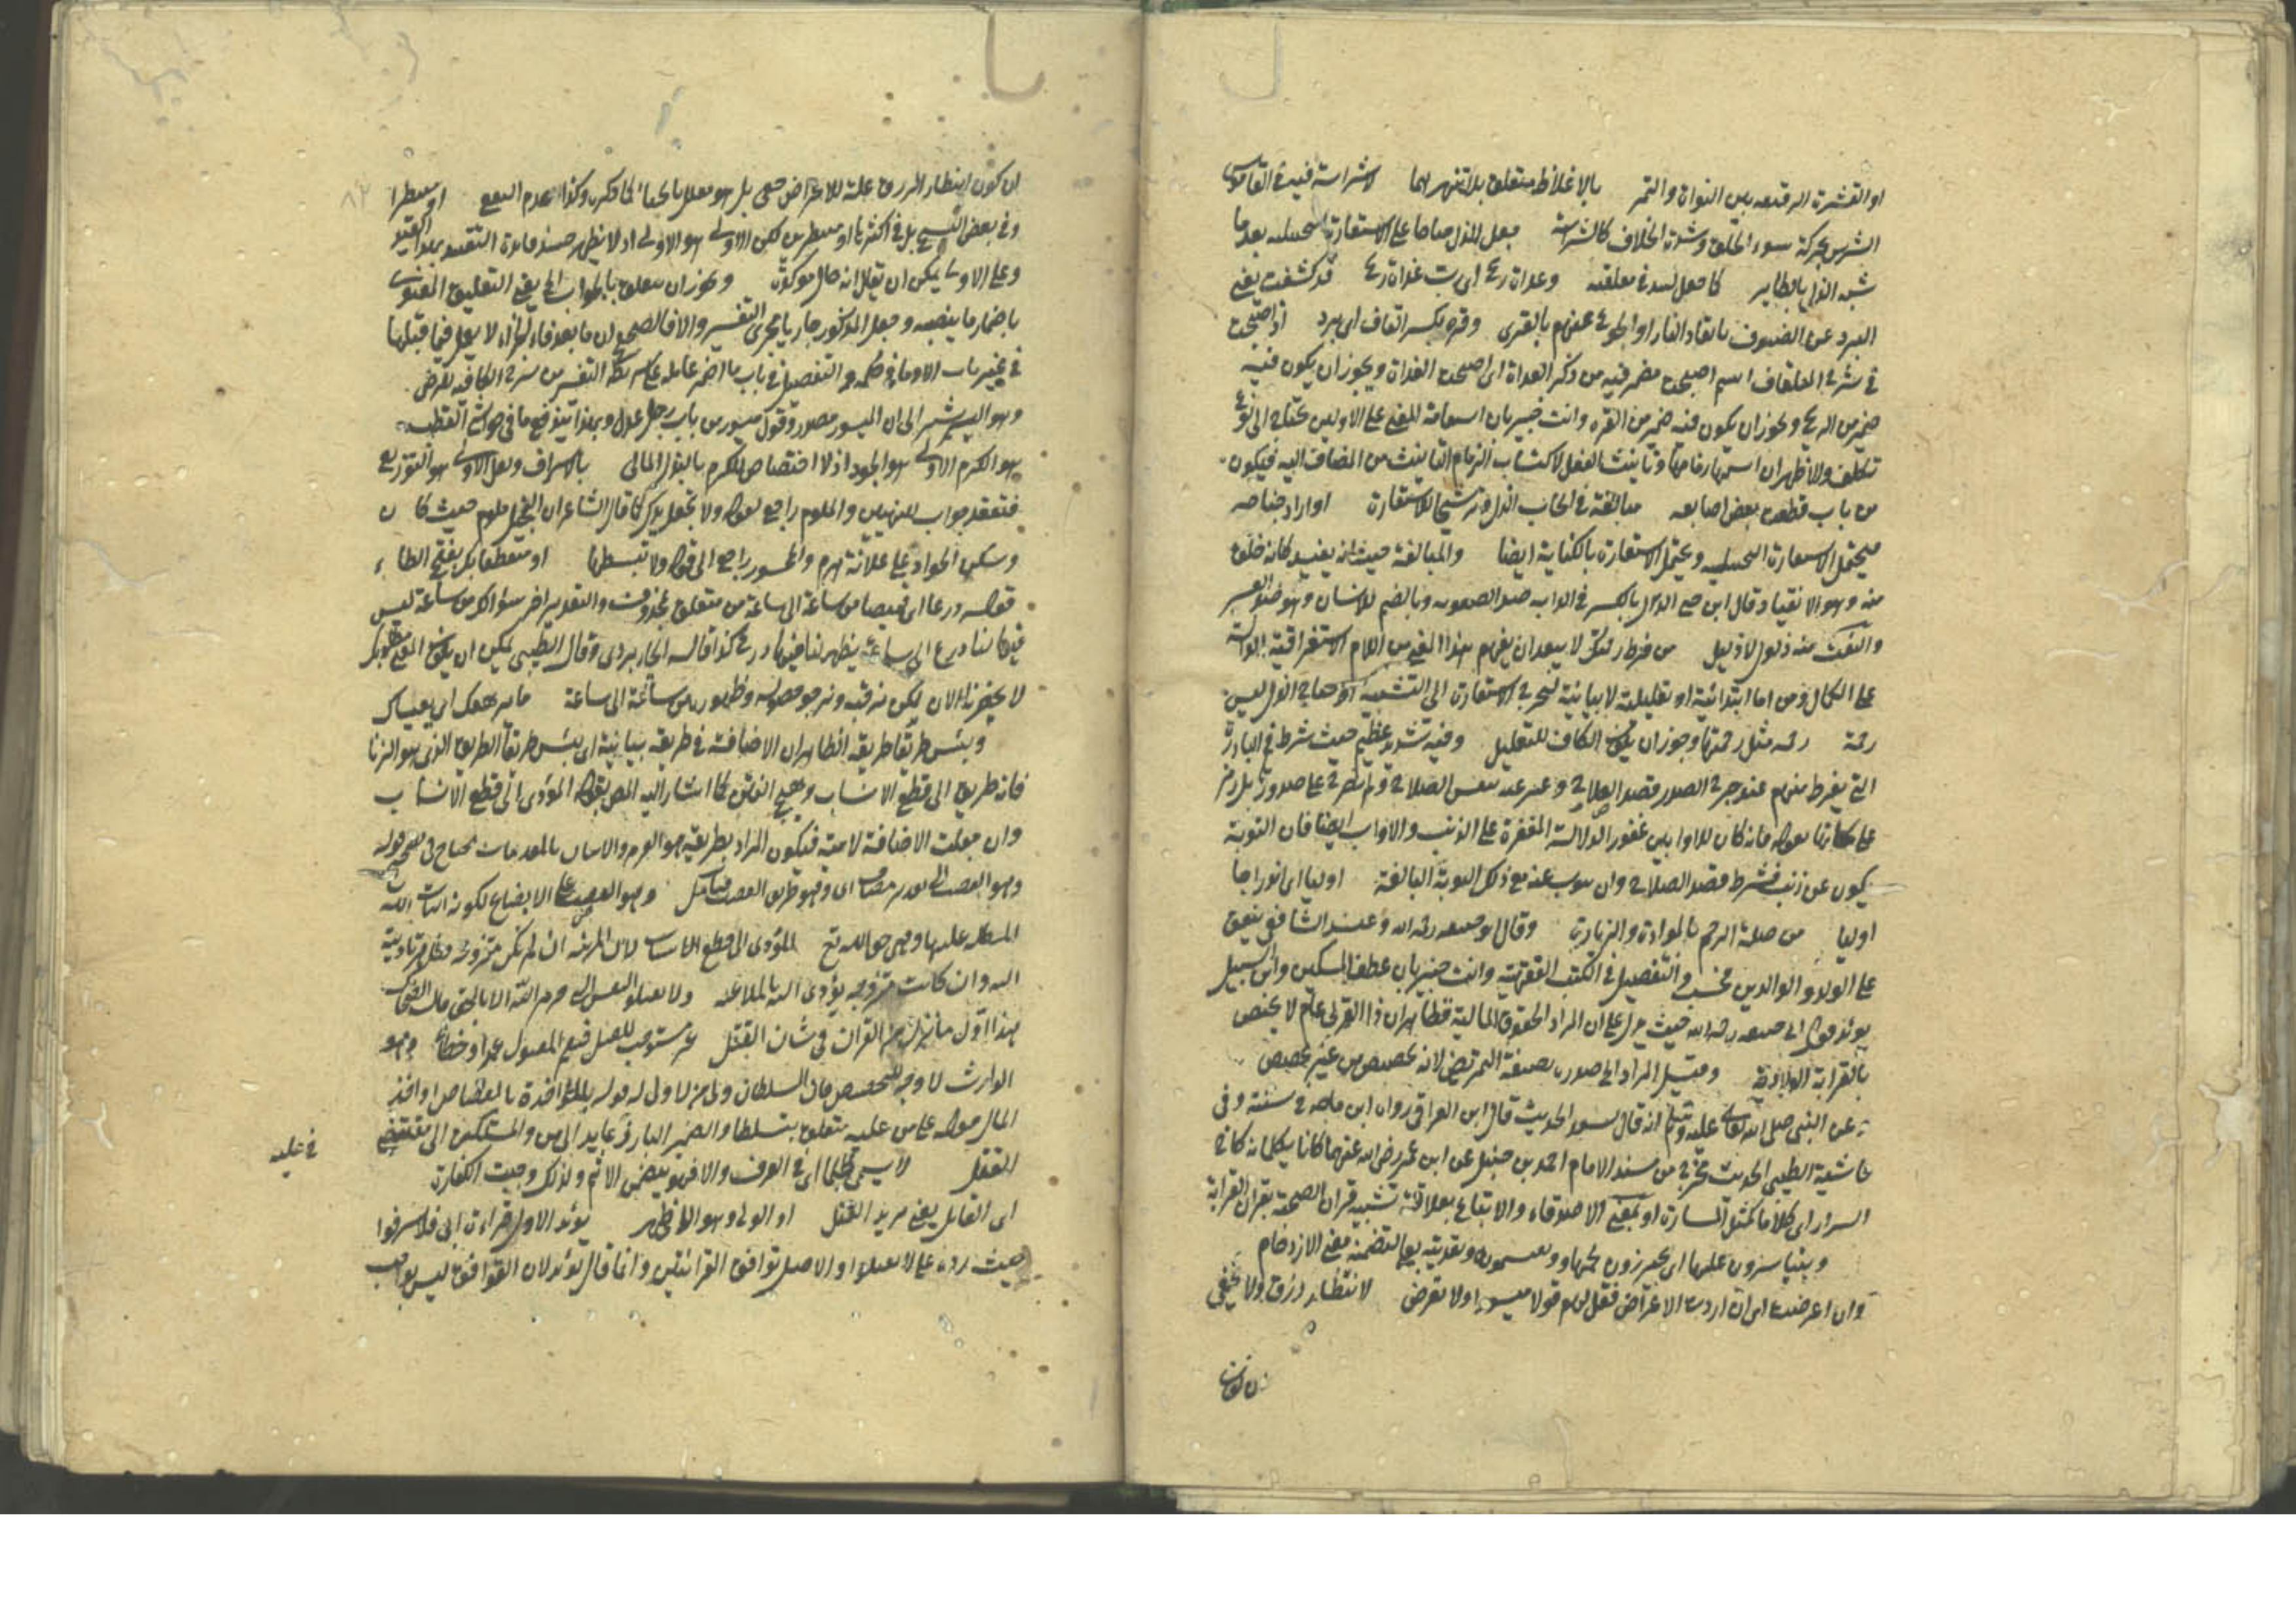 او القشرة الرقيقة بين النواة والتمر بالاغلاظ متعلق بلا تنهرهما لاشراسة فيه في القاموس
الشرس محركة سوء الخلق وشدة الخلاف كالشراسة جعل للذل جناحا على الاستعارة التخييلية بعد ما
شبه الذل بالطاير كما جعل لبيد في معلقته وغداة ريح اى رب غداة ريح قد كشفت يعنى
البرد عن الضيوف بايقاد النار او الجوع عنهم بالقرى وقرة بكسر القاف اى برد اذ اصبحت
في شرح المعلقات اسم اصبحت مضمر فيه من ذكر الغداة اى اصبحت الغداة ويجوز ان يكون فيه
ضمير من الريح ويجوز ان يكون فيه ضمير من القرة وانت خبير بان استقامة المعنى على الاولين محتاج الى نوع
تكلف والاظهر ان اسمها زمامها وتأنيث الفعل لاكتساب الزمام التأنيث من المضاف اليه فيكون
من باب قطعت بعض اصابعه مبالغة في ايجاب الذل وترشيحا للاستعارة او اراد جناحه
فيحتمل الاستعارة التخييلية ويحتمل الاستعارة بالكناية ايضا والمبالغة حيث انه يفيد كانه خلق
منه وهو الانقياد وقال ابن جنى الذل بالكسر في الدابة ضد الصعوبة وبالضم للانسان وهو ضد العز
والنعت منه ذلول لا ذليل من فرط رحمتك لا يبعد ان يفهم هذا المعنى من اللام الاستغراقية الدالة
على الكمال ومن اما ابتدائية او تعليلية لا بيانية
رحمة رحمة مثل رحمتهما وجوز ان يكون الكاف للتعليل وفيه تشديد عظيم حيث شرط في البادرة
التى يفرط منهم عند حرج الصدر قصد الصلاح
فانه كان للاوابين غفورا لدلالة المغفرة على الذنب والاواب ايضا فان التوبة
يكون عن ذنب فشرط قصد الصلاح وان يتوب عنه مع ذلك التوبة البالغة اوليا
اوليا من صلة الرحم بالموادة والزيارة وقال ابو حنيفة رحمه الله وعند الشافعى ينفق
على الولد والوالدين فحسب والتفصيل في الكتب الفقهية وانت خبير بان عطف المسكين وابن السبيل
يؤيد قول ابى حنيفة رحمه الله حيث يدل على ان المراد الحقوق المالية فظاهر ان ذا القربى عام لا يختص
بالقرابة الولادية وقيل المراد الى صدره بصيغة التمريض لانه تخصيص من غير مخصص
عن النبى صلى الله تعالى عليه وسلم انه قال لسعد الحديث قال ابن العراقى رواه ابن ماجه في سننه وفى
حاشية الطيبى الحديث مخرج من مسند الامام احمد بن حنبل عن ابن عمر رضى الله عنهما
السرار اى كلاما كمثل المسارة او بمعنى الاصدقاء والاتباع بعلاقة تشبيه قران الصحبة بقران القرابة
ويتياسرون عليها اى يجزرون لحمها ويقسمونه وتعديته بعلى لتضمنه معنى الازدحام
وان اعرضت اى ان اردت الاعراض فقل لهم قولا ميسورا ولا تعرض لانتظار رزق ولا يخفى
ان كون
ان كون انتظار الرزق علة للاعراض خفى بل هو معلل بالحياء كما ذكره وكذا عدم النفع او منتظرا
وفى بعض النسخ بل في اكثرها او منتظرين لكن الاولى هو الاولى اذ لا يظهر حينئذ فائدة التقييد بهذا القيد
وعلى الاولى يمكن ان يقال انه حال مؤكدة ويجوز ان يتعلق بالجواب الخ يعنى التعليق المعنوى
باضمار ما ينصبه وجعل المذكور جاريا مجرى التفسير والا فالصحيح ان ما بعد فاء الجزاء لا يعمل فيما قبلها
في غير باب الاوما في حكمه والتفصيل في باب ما اضمر عامله على شريطة التفسير من شرح الكافية للرضى
وهو اليسر يشير الى ان الميسور مصدر وقول ميسور من باب رجل عدل وبهذا يتوضح ما في حواشى القطب
هو الكرم الاولى هو الجود اذ لا اختصاص للكرم بالبذل المالى بالاسراف ولعل الاولى هو التوزيع
فتقعد جواب للنهيين والملوم راجع لقوله ولا تجعل يدك كما قال الشاعر ان البخيل ملوم حيث كا ن
ولكن الجواد على علاته هرم والمحسور راجع الى قوله ولا تبسطها او منقطعا بك بفتح الطاء
قوله درعا اى قميصا من ساعة الى ساعة من متعلق بمحذوف والتقدير اخر سؤالك من ساعة ليس
فيها لنا درع الى ساعة يظهر لنا فيها درع كذا قاله الجاربردى وقال الطيبى يمكن ان يكون المعنى مطلوبك
لا يحضرنا الآن لكن نرقبه ونرجو حصوله وظهوره من ساعة الى ساعة ما يرهقك اى يغشاك
وبئس طريقا طريقه الظاهر ان الاضافة في طريقه بيانية اى بئس طريقا الطريق الذى هو الزنا
فانه طريق الى قطع الانساب وهيج الفتن كما اشار اليه المص بقوله المؤدى الى قطع الانساب
وان جعلت الاضافة لامية فيكون المراد بطريقه هو العزم والاتيان بالمقدمات محتاج في
وهو الغصب على الابضاع لكونه اثبات اليد
المبطلة عليها وهى حق الله تع المؤدى الى قطع الانساب لان المزنية ان لم تكن متزوجة
اليه وان كانت متزوجة يؤدى اليه بالملاعنة ولا تقتلوا النفس التى حرم الله الا بالحق قال الضحاك
هذا اول ما نزل من القرآن في شان القتل غير مستوجب للقتل فيعم المقتول عمدا وخطأ وهو
الوارث لا وجه للتخصيص فان السلطان ولى من لا ولى له قوله بالمؤاخذة بالقصاص او اخذ
المال قوله على من عليه متعلق بتسلطا والضمير البارز عايد الى من والمستكن الى مقتضى
في عليه
القتل لا يسمى ظلما اى في العرف والا فهو يتضمن الاثم ولذلك وجبت الكفارة
اى القاتل يعنى مريد القتل او الولى وهو الاظهر يؤيد الاول قراءة ابى فلا تسرفوا
حيث رده على لا تقتلوا والاصل توافق القرائتين وانما قال يؤيد لان التوافق ليس بواجب